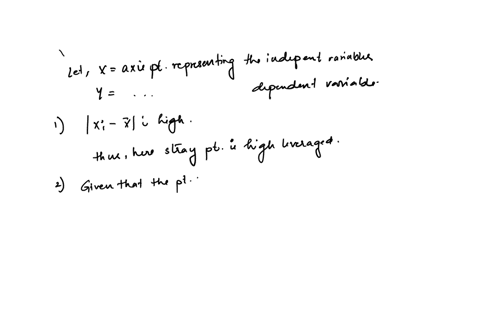 Let, x = axis pt. representing the indepent variables
Y = ... dependent variable.
1) |xi - x̄| is high.
thus, here stray pt. is high leveraged.
2) Given that the pt..